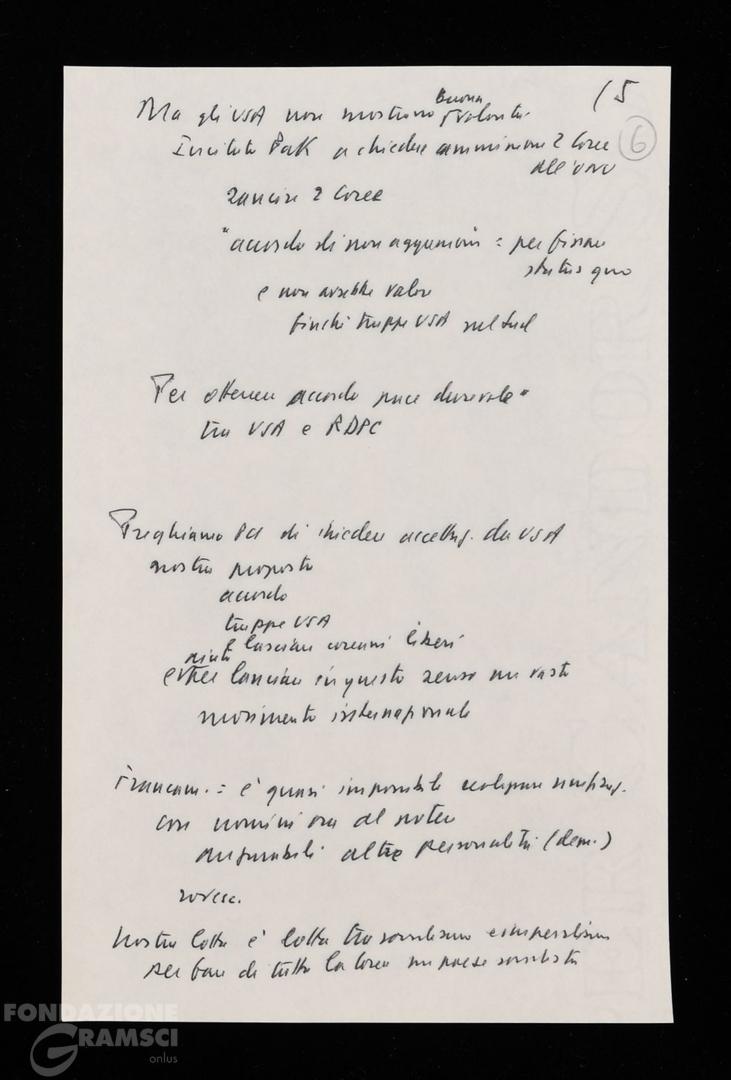 15
6
Ma gli USA non mostrano buona volontà.
Incitato Pak a chiedere ammissione 2 Coree
all'ONU
sancire 2 Coree
"accordo di non aggressione" = per fissare
status quo
e non avrebbe valore
finché truppe USA nel Sud
Per ottenere accordo pace durevole"
tra USA e RDPC
Preghiamo PCI di chiedere accettaz. da USA
nostra proposta
accordo
truppe USA
lasciare coreani liberi
aiuti
e lanciare in questo senso un vasto
movimento internazionale
Francam. = è quasi impossibile
con uomini ora al potere
auspicabili altre personalità (dem.)
Nostra lotta è lotta tra socialismo e imperialismo
per fare di tutta la Corea un paese socialista
FONDAZIONE
GRAMSCI
onlus